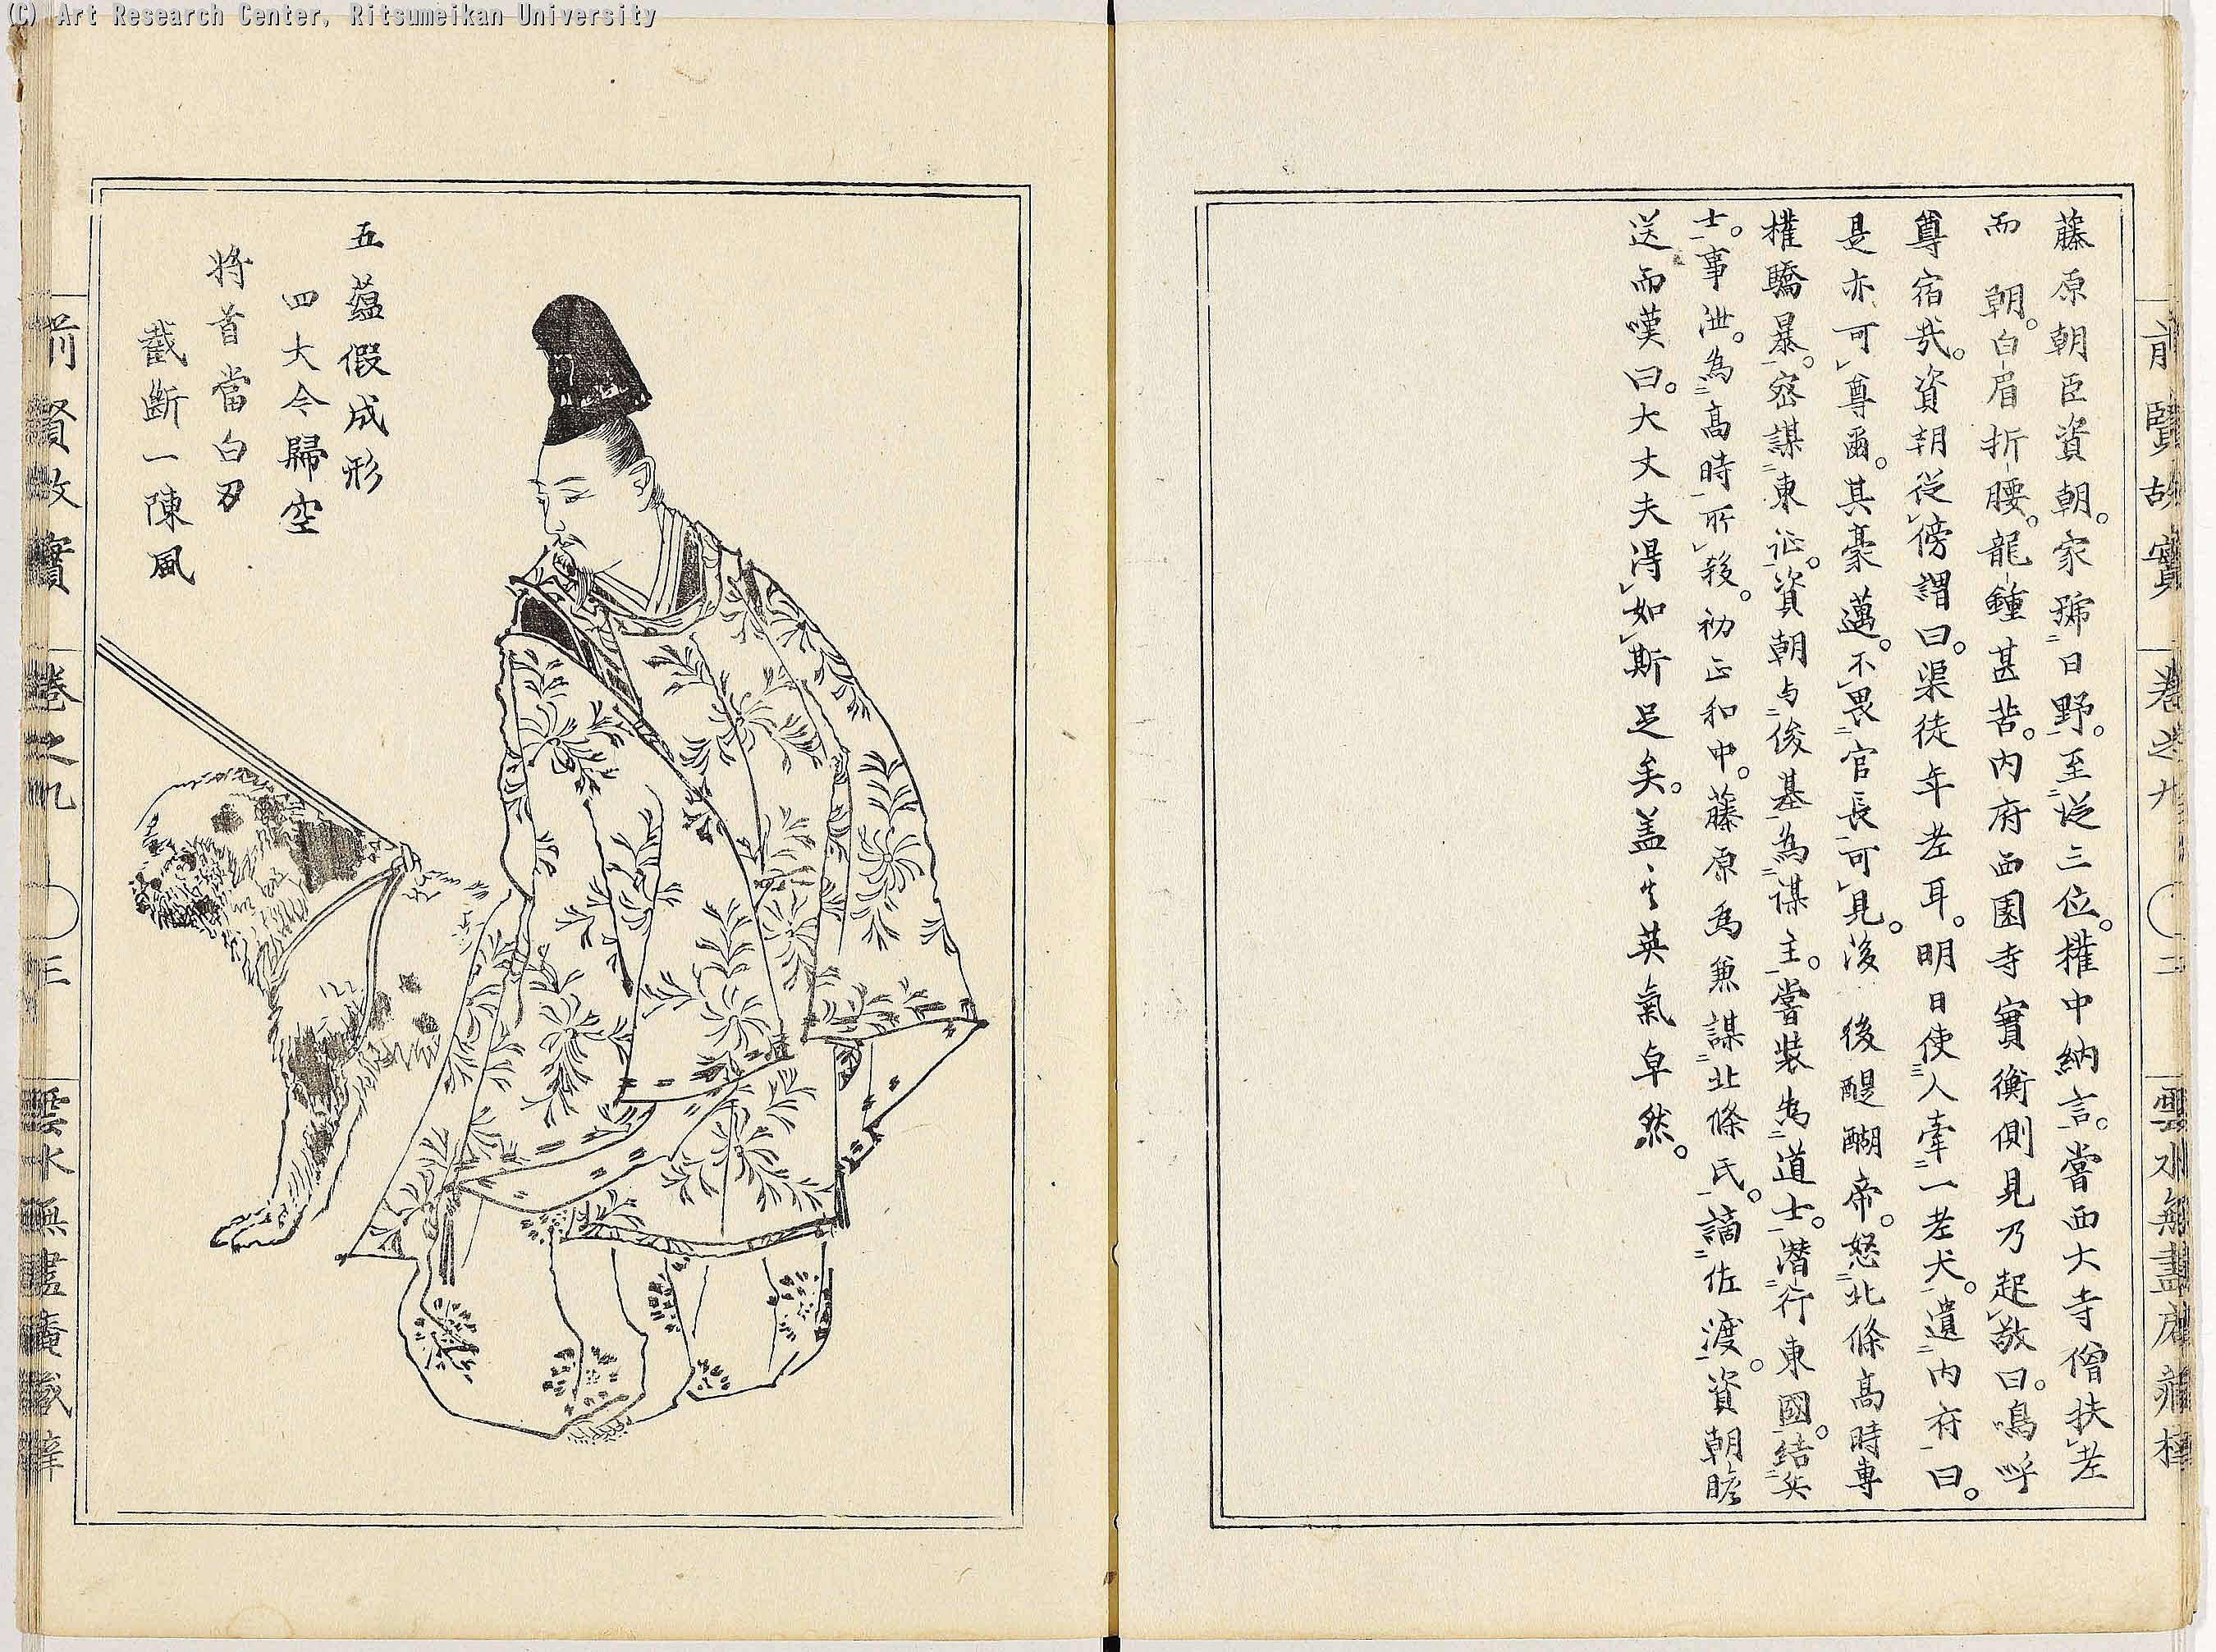 (C) Art Research Center, Ritsumeikan University
前賢故實 卷之九 二 雲水無盡庵藏梓
藤原朝臣資朝。家號日野。至從三位。權中納言。嘗西大寺僧扶老
而 朝。白眉折腰。龍鍾甚苦。內府西園寺實衡側見乃起敬曰。嗚呼
尊宿哉。資朝從傍謂曰。渠徒年老耳。明日使人牽一老犬。遺內府曰。
是亦可尊爾。其豪邁。不畏官長可見。後 後醍醐帝。怒北條高時專
權驕暴。密謀東征。資朝与俊基為謀主。嘗裝為道士。潛行東國。結兵
士。事泄。為高時所殺。初正和中。藤原為兼謀北條氏。謫佐渡。資朝瞻
送而嘆曰。大丈夫得如斯足矣。盖其英氣卓然。
五蘊假成形
四大今歸空
将首當白刃
截斷一陳風
前賢故實 卷之九 三 雲水無盡庵藏梓